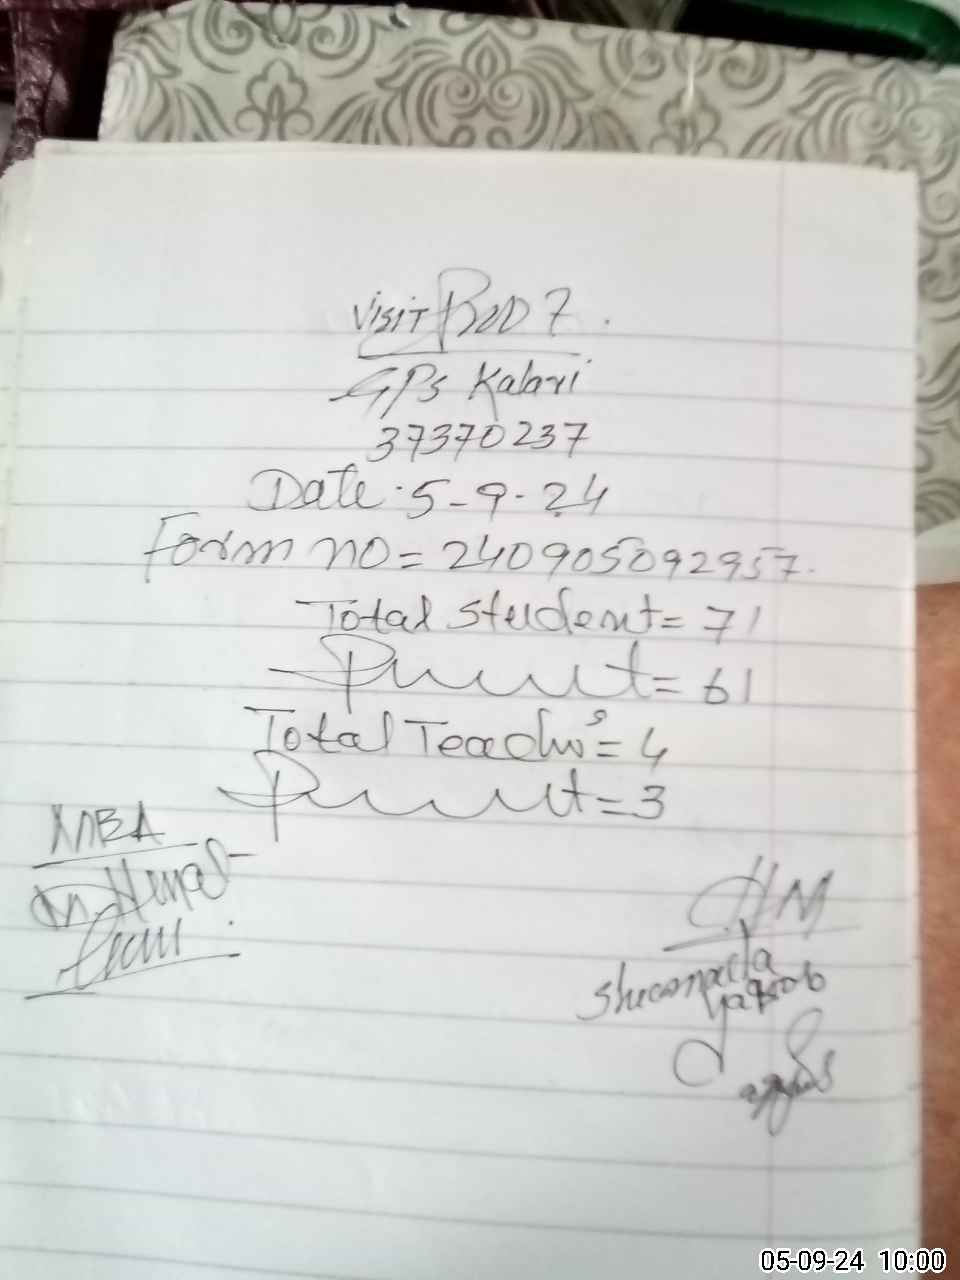 VISIT Prod 7.
GPS Kalari
37370237
Date. 5-9-24
Form no = 240905092957.
Total Student = 71
Present = 61
Total Teachers = 4
Present = 3
MEA
HM
Yaqoob
05-09-24 10:00